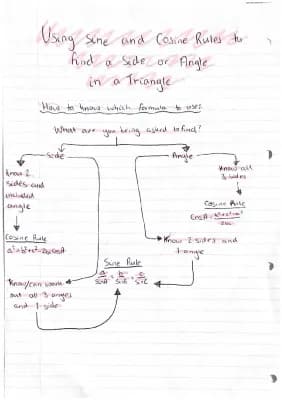 Using Sine and Cosine Rules to
find a Side or Angle
in a Triangle
How to know which formula to use?
What are you being asked to find?
Side
Angle
Know 2
sides and
included
angle
Know all
3 sides
Cosine Rule
a²=b²+c²-2bcCosA
Cosine Rule
CosA=
Know 2 sides and
1 angle
Sine Rule
a/SinA = b/SinB = c/SinC
Know/can work
out all 3 angles
and 1 side